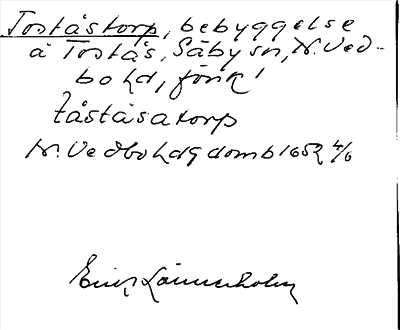 Toståstorp, bebyggelse
å Tostås, Säby sn, N. Ved-
bo hd, förk!
tåståsatorp
N. Vedbo hds domb 1652 4/6
Erik Linnerholm